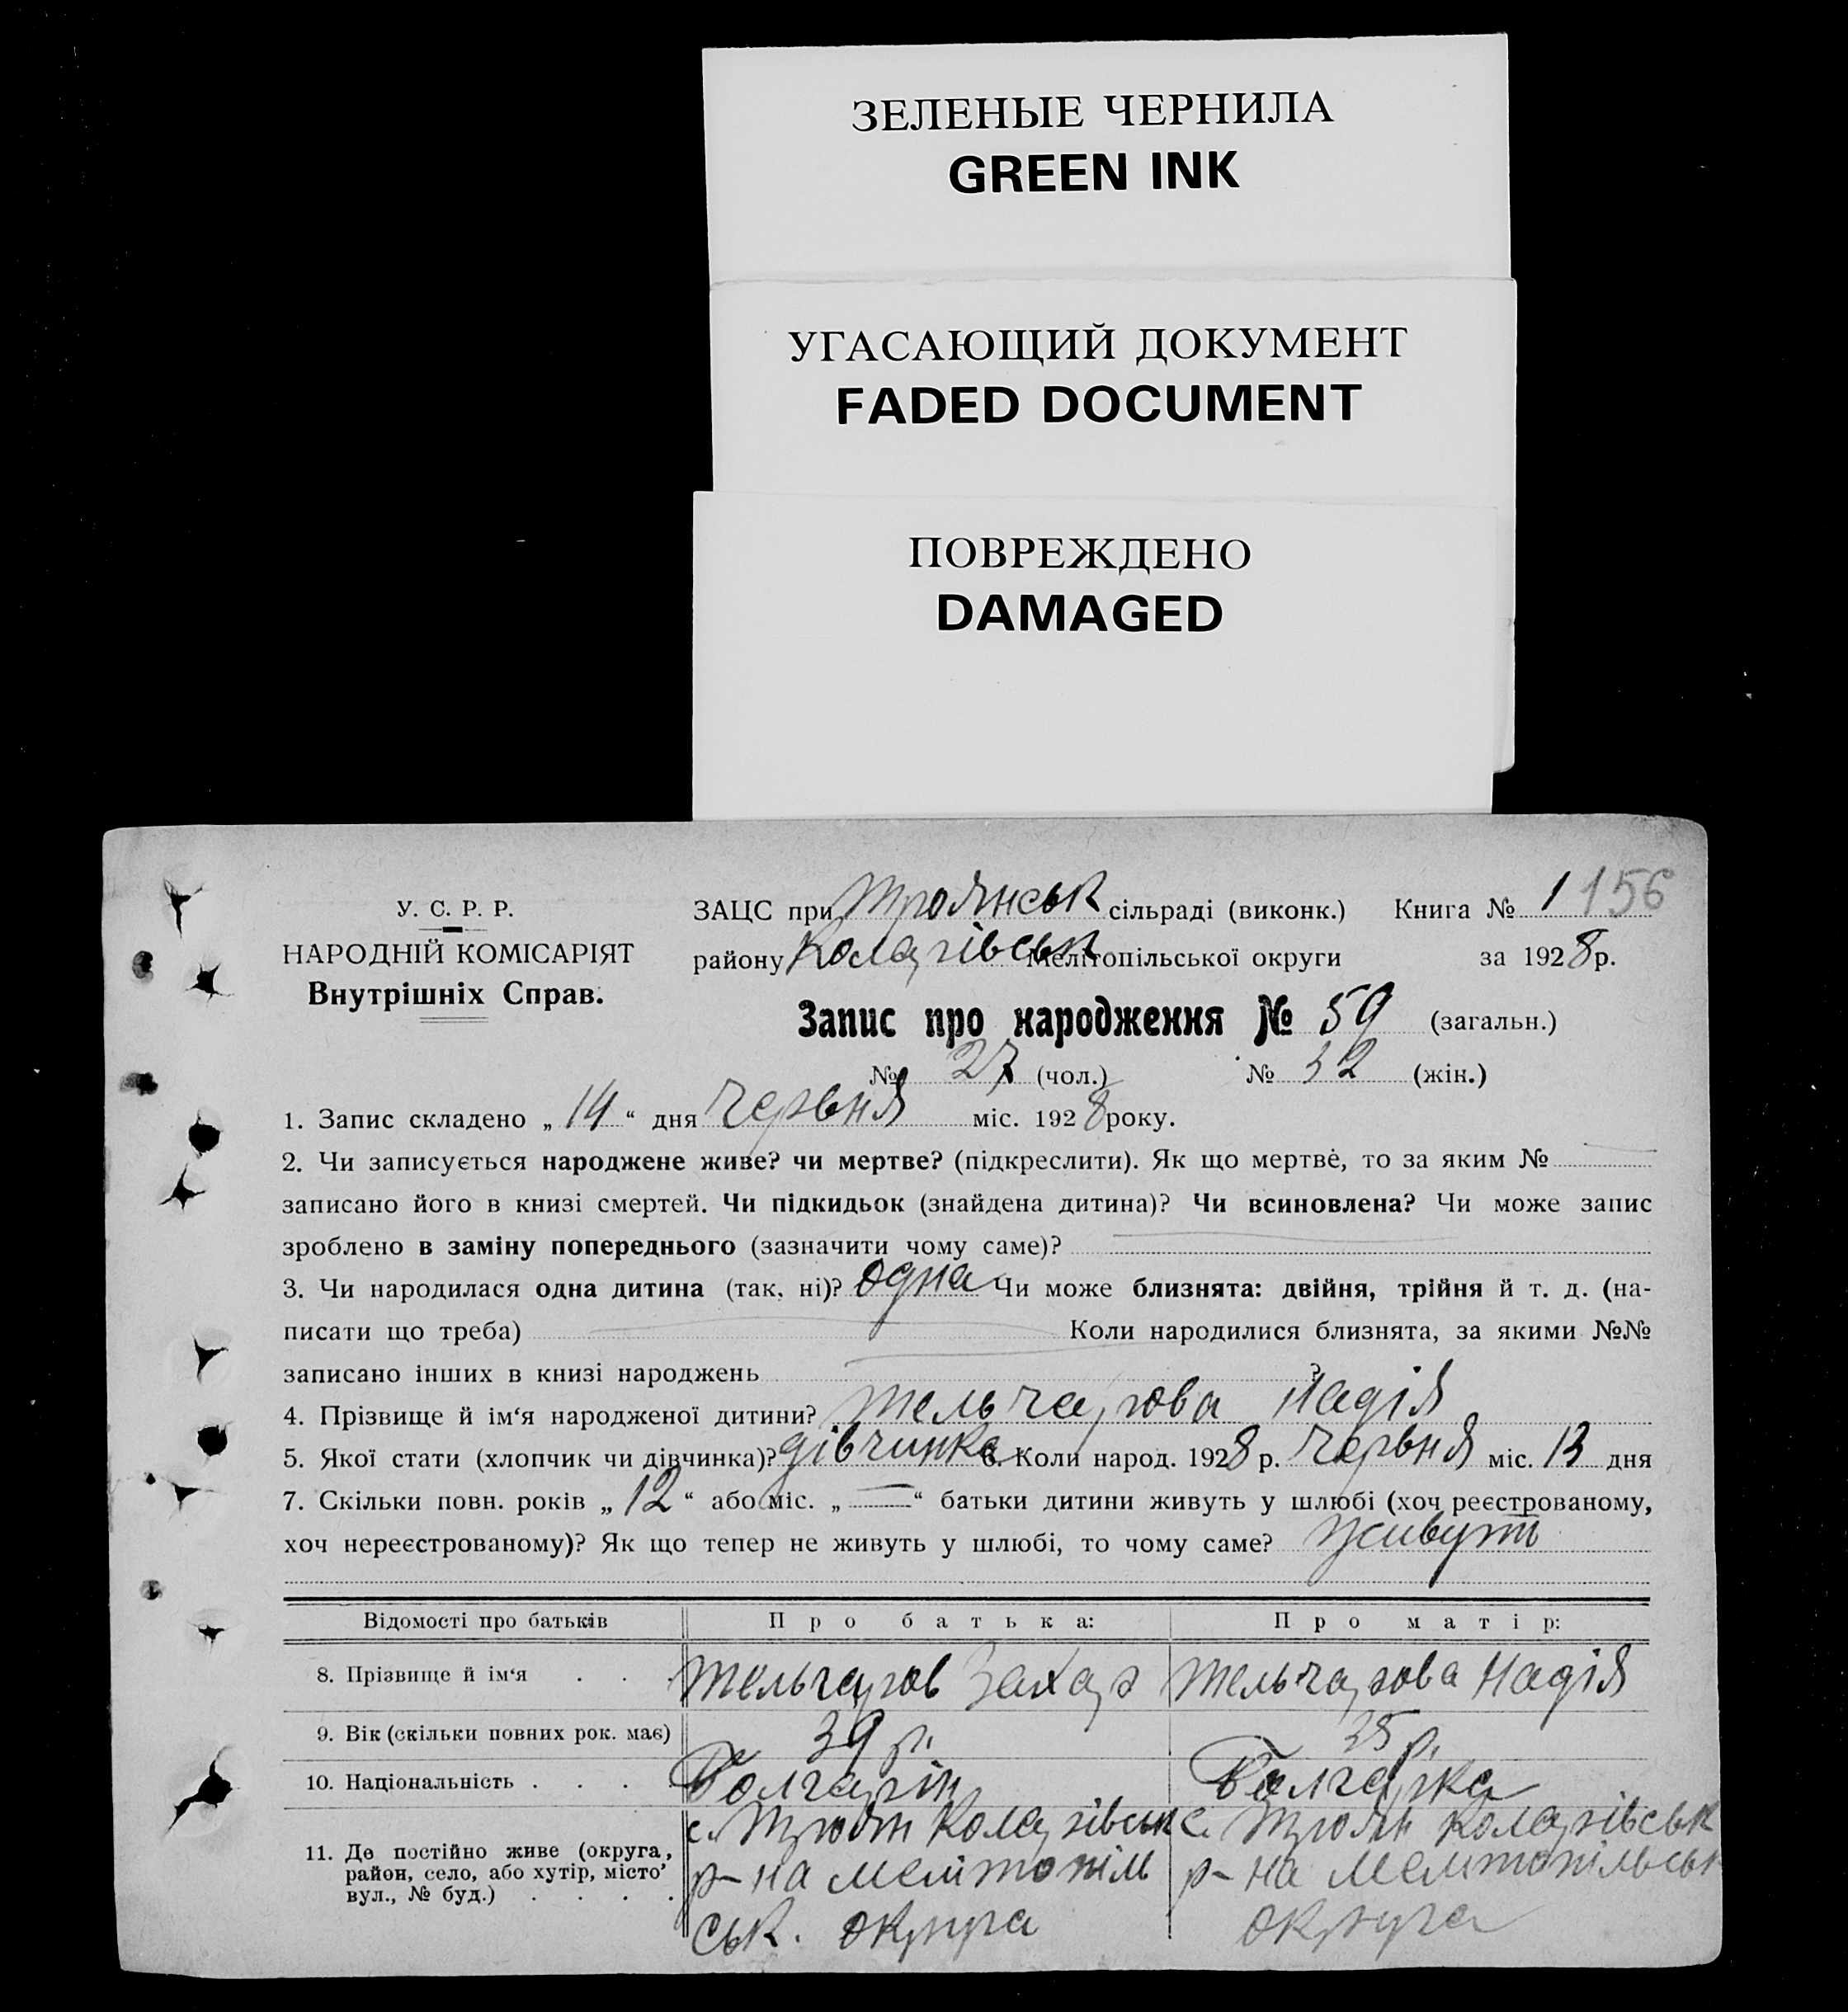 ЗЕЛЕНЫЕ ЧЕРНИЛА
GREEN INK
УГАСАЮЩИЙ ДОКУМЕНТ
FADED DOCUMENT
ПОВРЕЖДЕНО
DAMAGED
У. С. Р. Р.
НАРОДНІЙ КОМІСАРІЯТ
Внутрішніх Справ.
ЗАЦС при Троянськ сільраді (виконк.) Книга № 1 156
району Коларівськ Мелітопільської округи за 1928 р.
Запис про народження № 59 (загальн.)
№ 27 (чол.) № 32 (жін.)
1. Запис складено „ 14 “ дня Червня міс. 1928 року.
2. Чи записується народжене живе? чи мертве? (підкреслити). Як що мертве, то за яким №
записано його в книзі смертей. Чи підкидьок (знайдена дитина)? Чи всиновлена? Чи може запис
зроблено в заміну попереднього (зазначити чому саме)?
3. Чи народилася одна дитина (так, ні)? Одна Чи може близнята: двійня, трійня й т. д. (на-
писати що треба) Коли народилися близнята, за якими №№
записано інших в книзі народжень ?
4. Прізвище й ім‘я народженої дитини? Тельчарова Надія
5. Якої стати (хлопчик чи дівчинка)? дівчинка 6. Коли народ. 1928 р. Червня міс. 13 дня
7. Скільки повн. років „ 12 “ або міс. „ — “ батьки дитини живуть у шлюбі (хоч реєстрованому,
хоч нереєстрованому)? Як що тепер не живуть у шлюбі, то чому саме? Живуть
Відомості про батьків Про батька: Про матір:
8. Прізвище й ім‘я . . . Тельчаров Захар Тельчарова Надія
9. Вік (скільки повних рок. має) 39 р. 35 р.
10. Національність . . . . Болгарін Болгарка
11. Де постійно живе (округа, с. Троян Коларівськ с. Троян Коларівськ
район, село, або хутір, місто’ р-на Мелітопіль р-на Мелітопільськ
вул., № буд.) . . . . ськ. округа округа